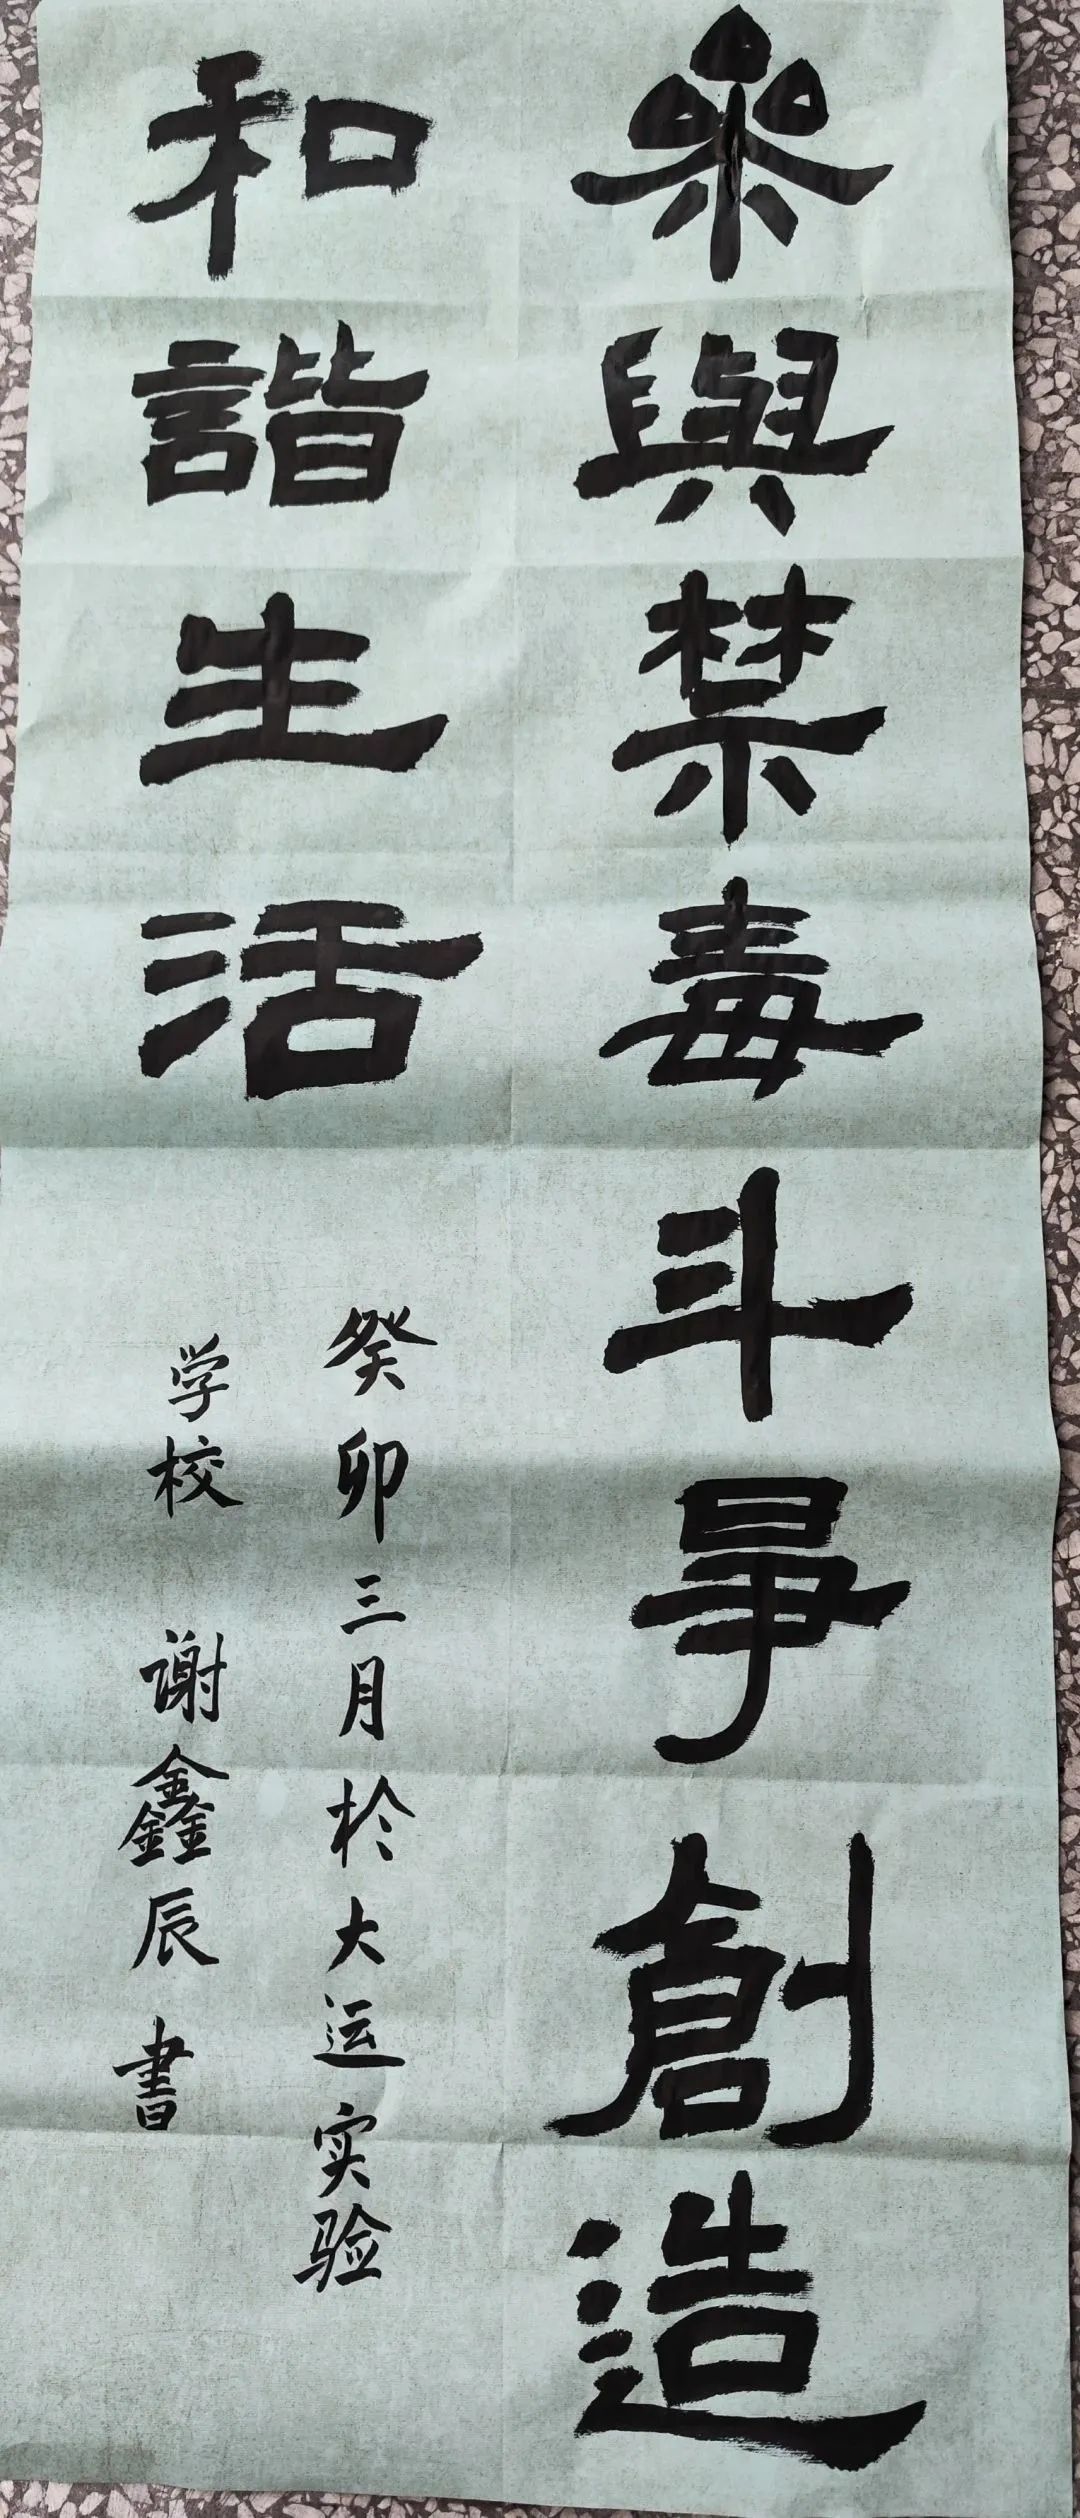 參與禁毒斗爭創造
和諧生活
癸卯三月於大运实验
学校 谢鑫辰 書